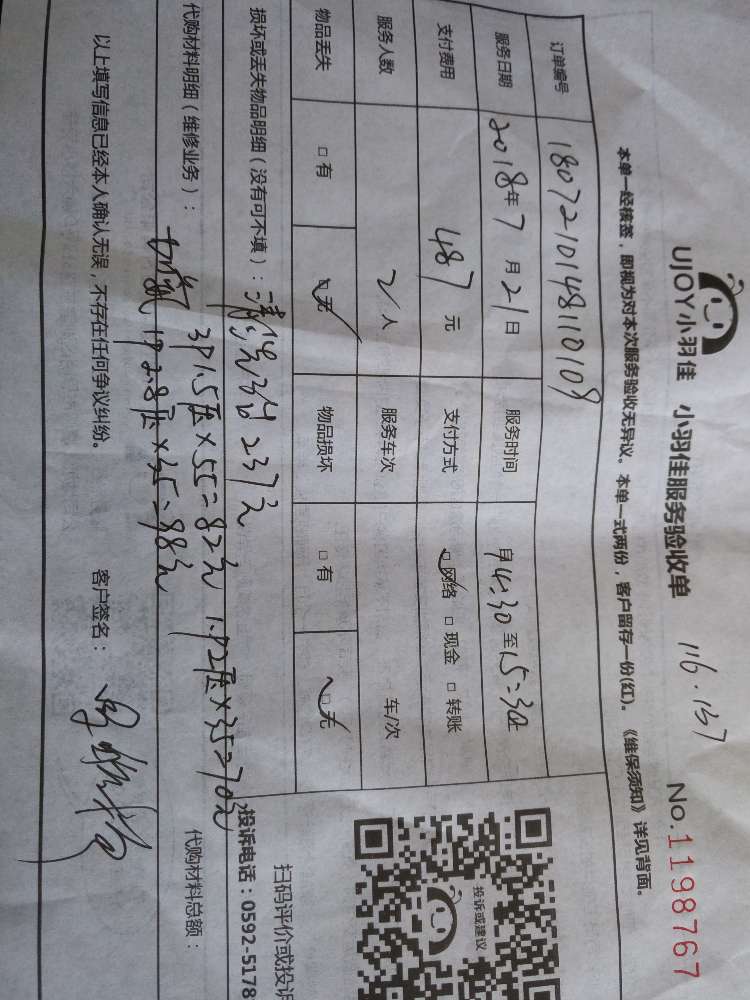 UJOY小羽佳 小羽佳服务验收单 116.137 No.1198767
本单一经核签，即视为对本次服务验收无异议。本单一式两份，客户留存一份(红)。《维保须知》详见背面。
订单编号 1807210148110109
服务日期 2018年7月21日 服务时间 自14:30至15:30止
支付费用 487元 支付方式 □网络 □现金 □转账
服务人数 2人 服务车次 车/次
物品丢失 □有 □无 物品损坏 □有 □无
损坏或丢失物品明细（没有可不填）：清洗3台237元
代购材料明细（维修业务）：
3P1.5压×55=82元 1P2压×35=70元
加氟 1P2.8压×35=98元
代购材料总额：
以上填写信息已经本人确认无误，不存在任何争议纠纷。 客户签名：
投诉或建议
扫码评价或投诉
投诉电话：0592-5178